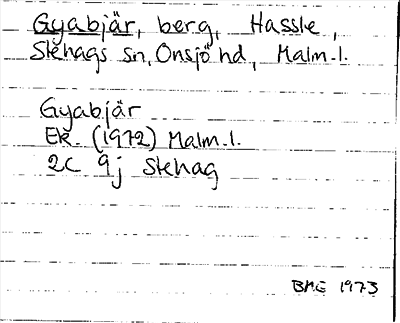 Gyabjär, berg, Hassle,
Stehags sn, Onsjö hd, Malm.l.
Gyabjär
Ek. (1972) Malm.l.
2C 9j Stehag
BMG 1973